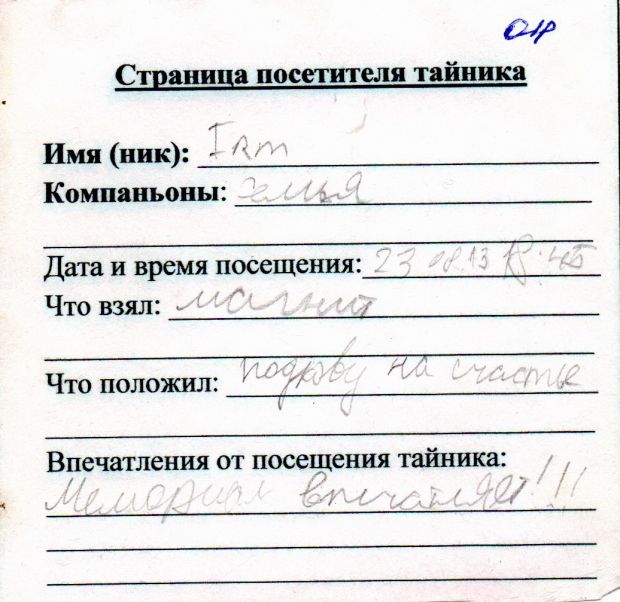 Страница посетителя тайника
Имя (ник): Irm
Компаньоны: семья
Дата и время посещения: 23 08.13
Что взял: магнит
Что положил: подкову на счастье
Впечатления от посещения тайника:
Мемориал впечатляет!!!